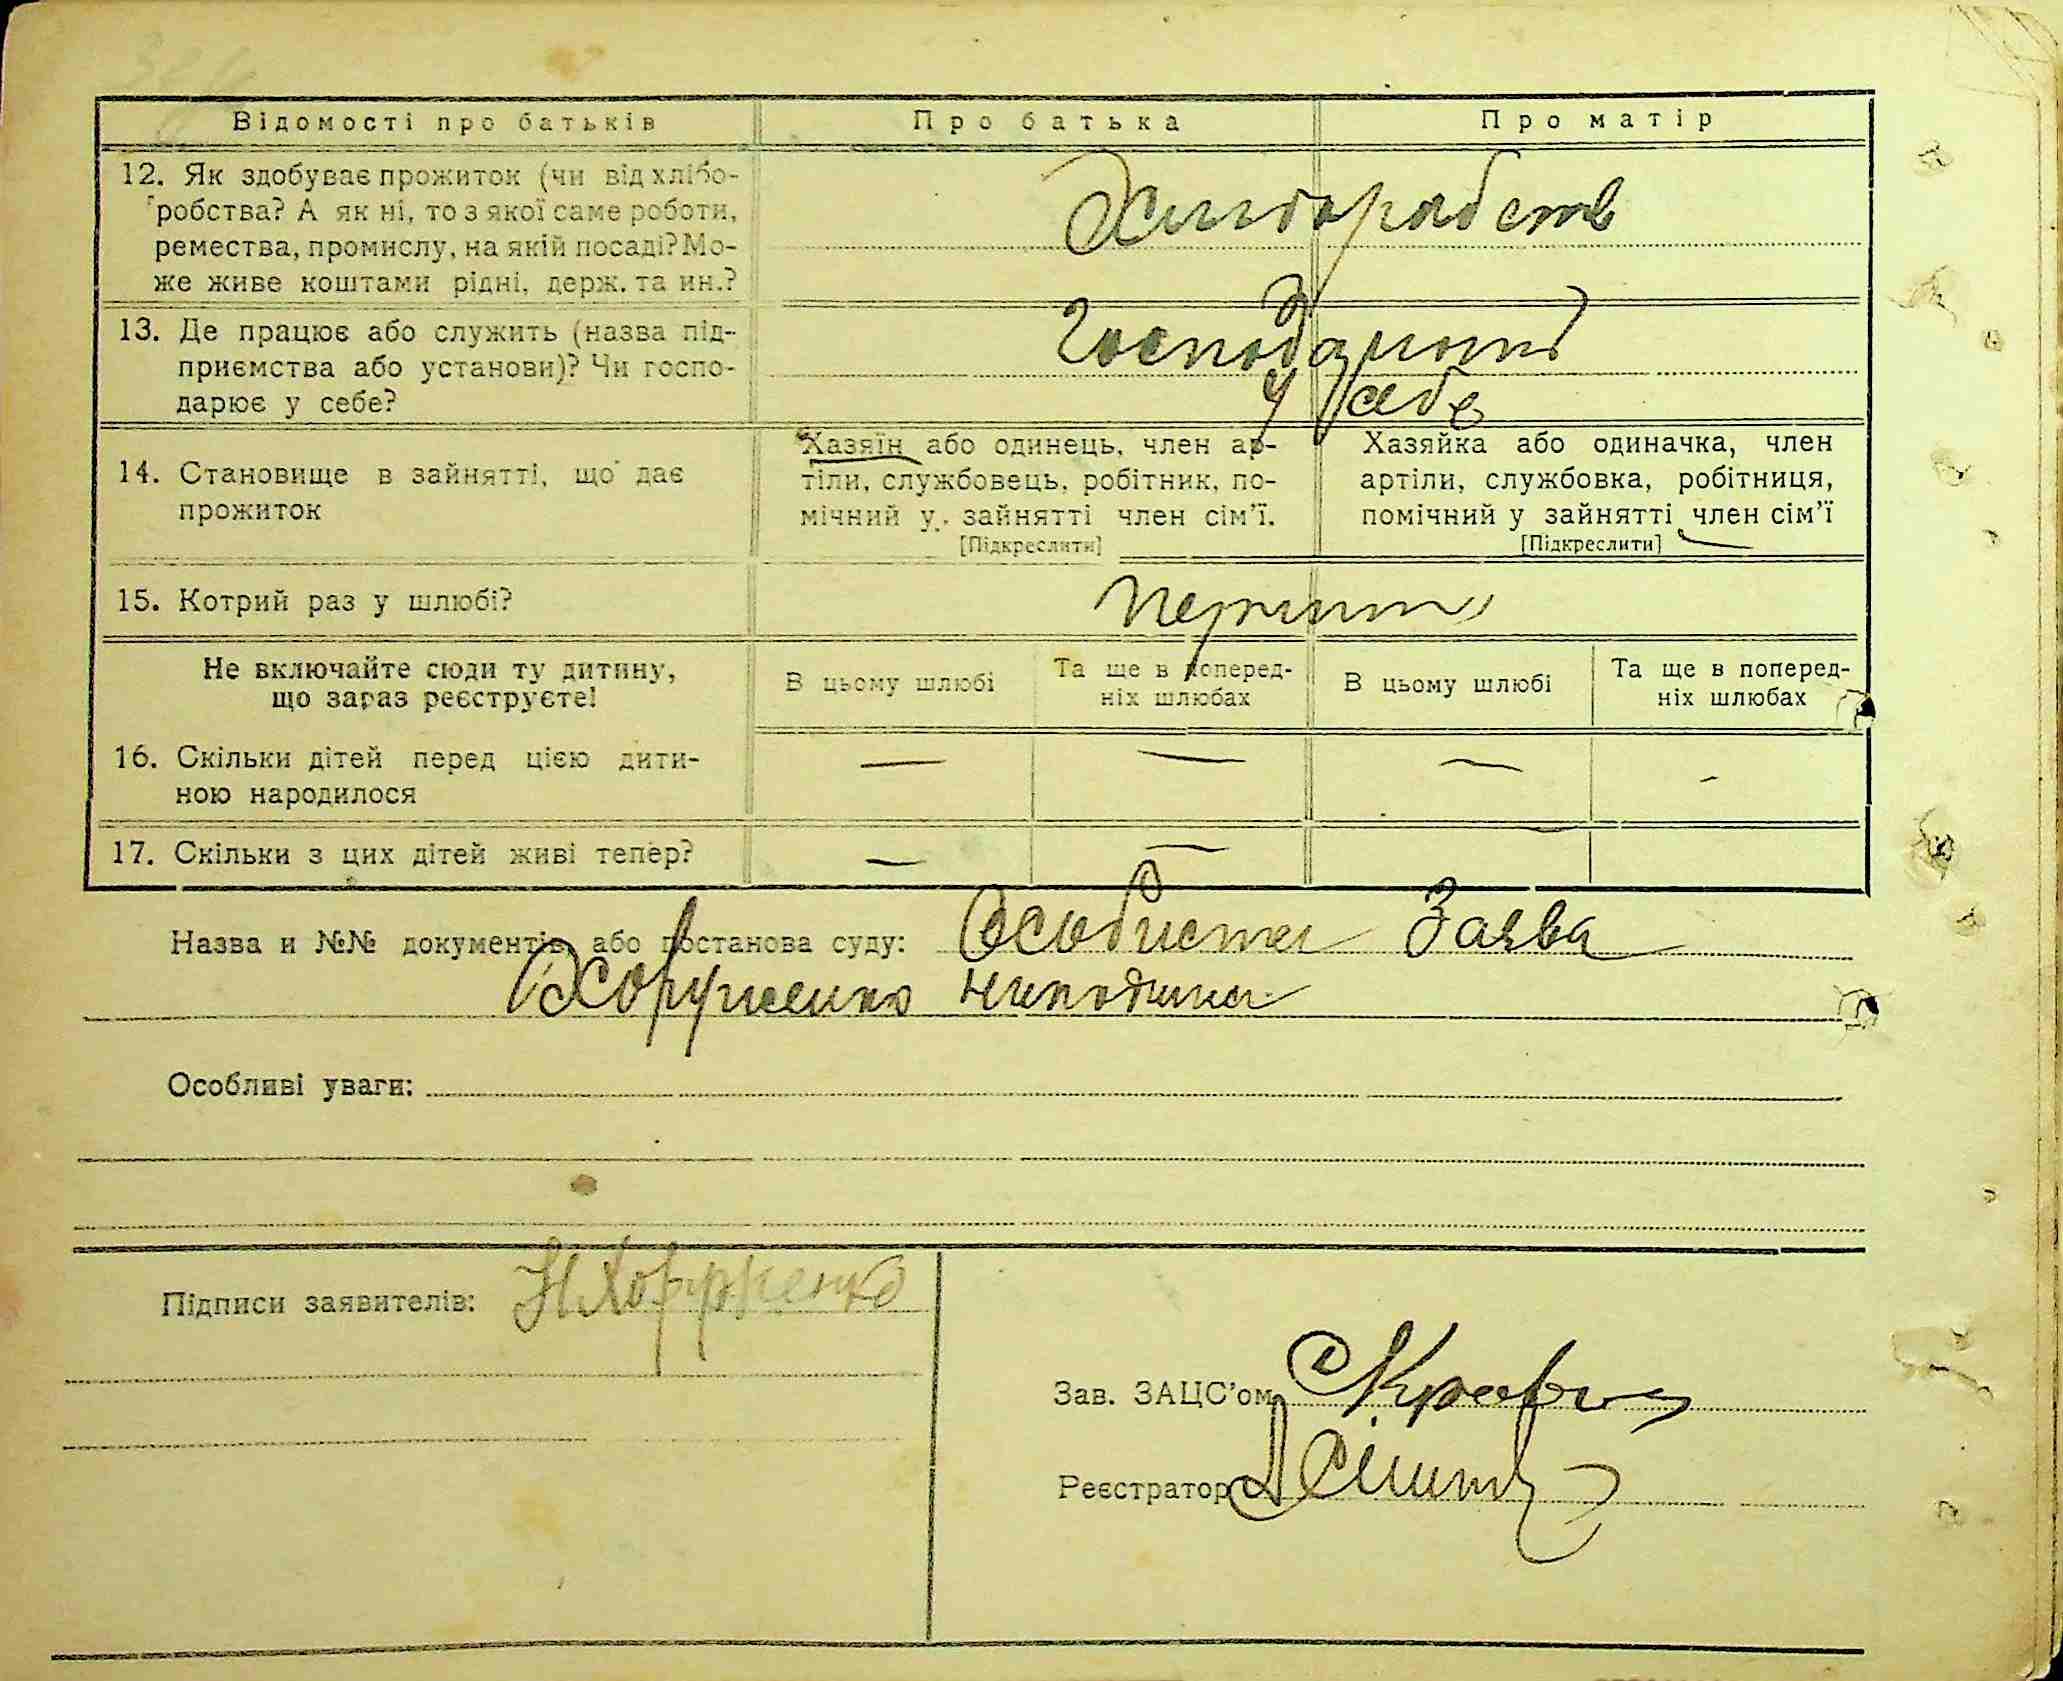 Відомості про батьків Про батька Про матір
12. Як здобуває прожиток (чи від хлібо-
робства? А як ні, то з якої саме роботи,
ремества, промислу, на якій посаді? Мо-
же живе коштами рідні, держ. та ин.?
Хлиборобств
13. Де працює або служить (назва під-
приємства або установи)? Чи госпо-
дарює у себе?
у себе
14. Становище в зайнятті, що дає
прожиток
Хазяїн або одинець, член ар-
тіли, службовець, робітник, по-
мічний у зайнятті член сім'ї.
[Підкреслити]
Хазяйка або одиначка, член
артіли, службовка, робітниця,
помічний у зайнятті член сім'ї
[Підкреслити]
15. Котрий раз у шлюбі?
Не включайте сюди ту дитину,
що зараз реєструєте!
В цьому шлюбі
Та ще в поперед-
ніх шлюбах
В цьому шлюбі
Та ще в поперед-
ніх шлюбах
16. Скільки дітей перед цією дити-
ною народилося
— — — -
17. Скільки з цих дітей живі тепер?
— — —
Назва и №№ документів або постанова суду: Особиста Заява
Хоруженко Никодима
Особливі уваги:
Підписи заявителів: Н Хоруженко
Зав. ЗАЦС'ом
Реєстратор